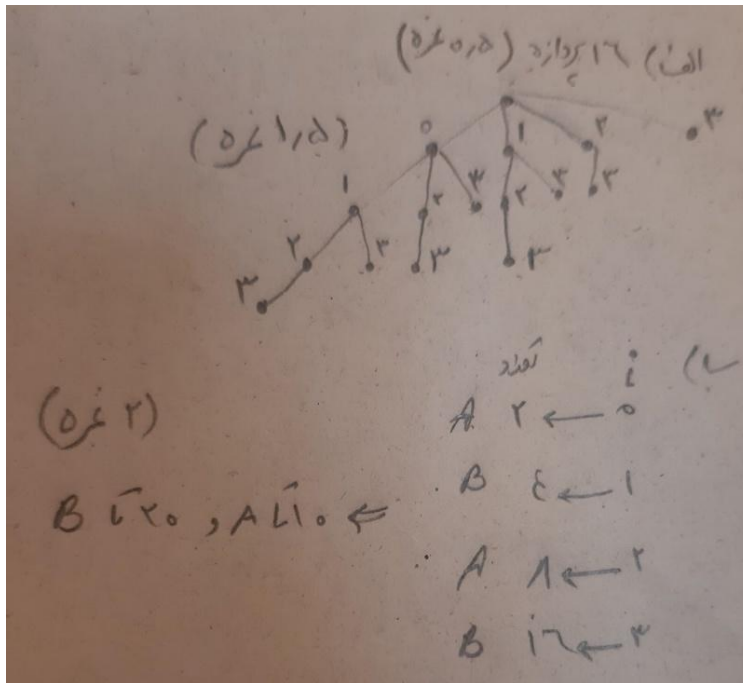 الف) ۱۶ پردازه (۰,۵ نمره)
(۱,۵ نمره)
۰ ۱ ۲ ۳
۱ ۲ ۳ ۲ ۳ ۳
۲ ۳ ۳ ۳
۳
ب)
i تعداد
۰ ← ۲ A
۱ ← ٤ B
۲ ← ۸ A
۳ ← ۱۶ B
⇐ ۱۰ تا A و ۲۰ تا B
(۲ نمره)